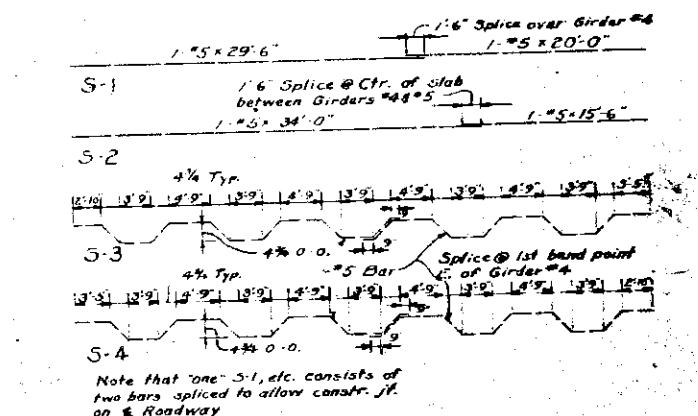 1'-6" Splice over Girder #4
1-#5 x 29'-6"
1-#5 x 20'-0"
S-1
1'-6" Splice @ Ctr. of Slab
between Girders #4 & #5
1-#5 x 34'-0"
1-#5 x 15'-6"
S-2
4¼ Typ.
2'-10" 3'-9" 4'-9" 3'-9" 4'-9" 3'-9" 4'-9" 3'-9" 4'-9" 3'-9" 3'-5"
9"
9"
S-3
4¾ O-O.
4¼ Typ.
#5 Bar
Splice @ 1st bend point
of Girder #4
3'-5" 3'-9" 4'-9" 3'-9" 4'-9" 3'-9" 4'-9" 3'-9" 4'-9" 3'-9" 2'-10"
9"
9"
S-4
4¾ O-O.
Note that "one" S-1, etc. consists of
two bars spliced to allow constr. jt.
on ℄ Roadway